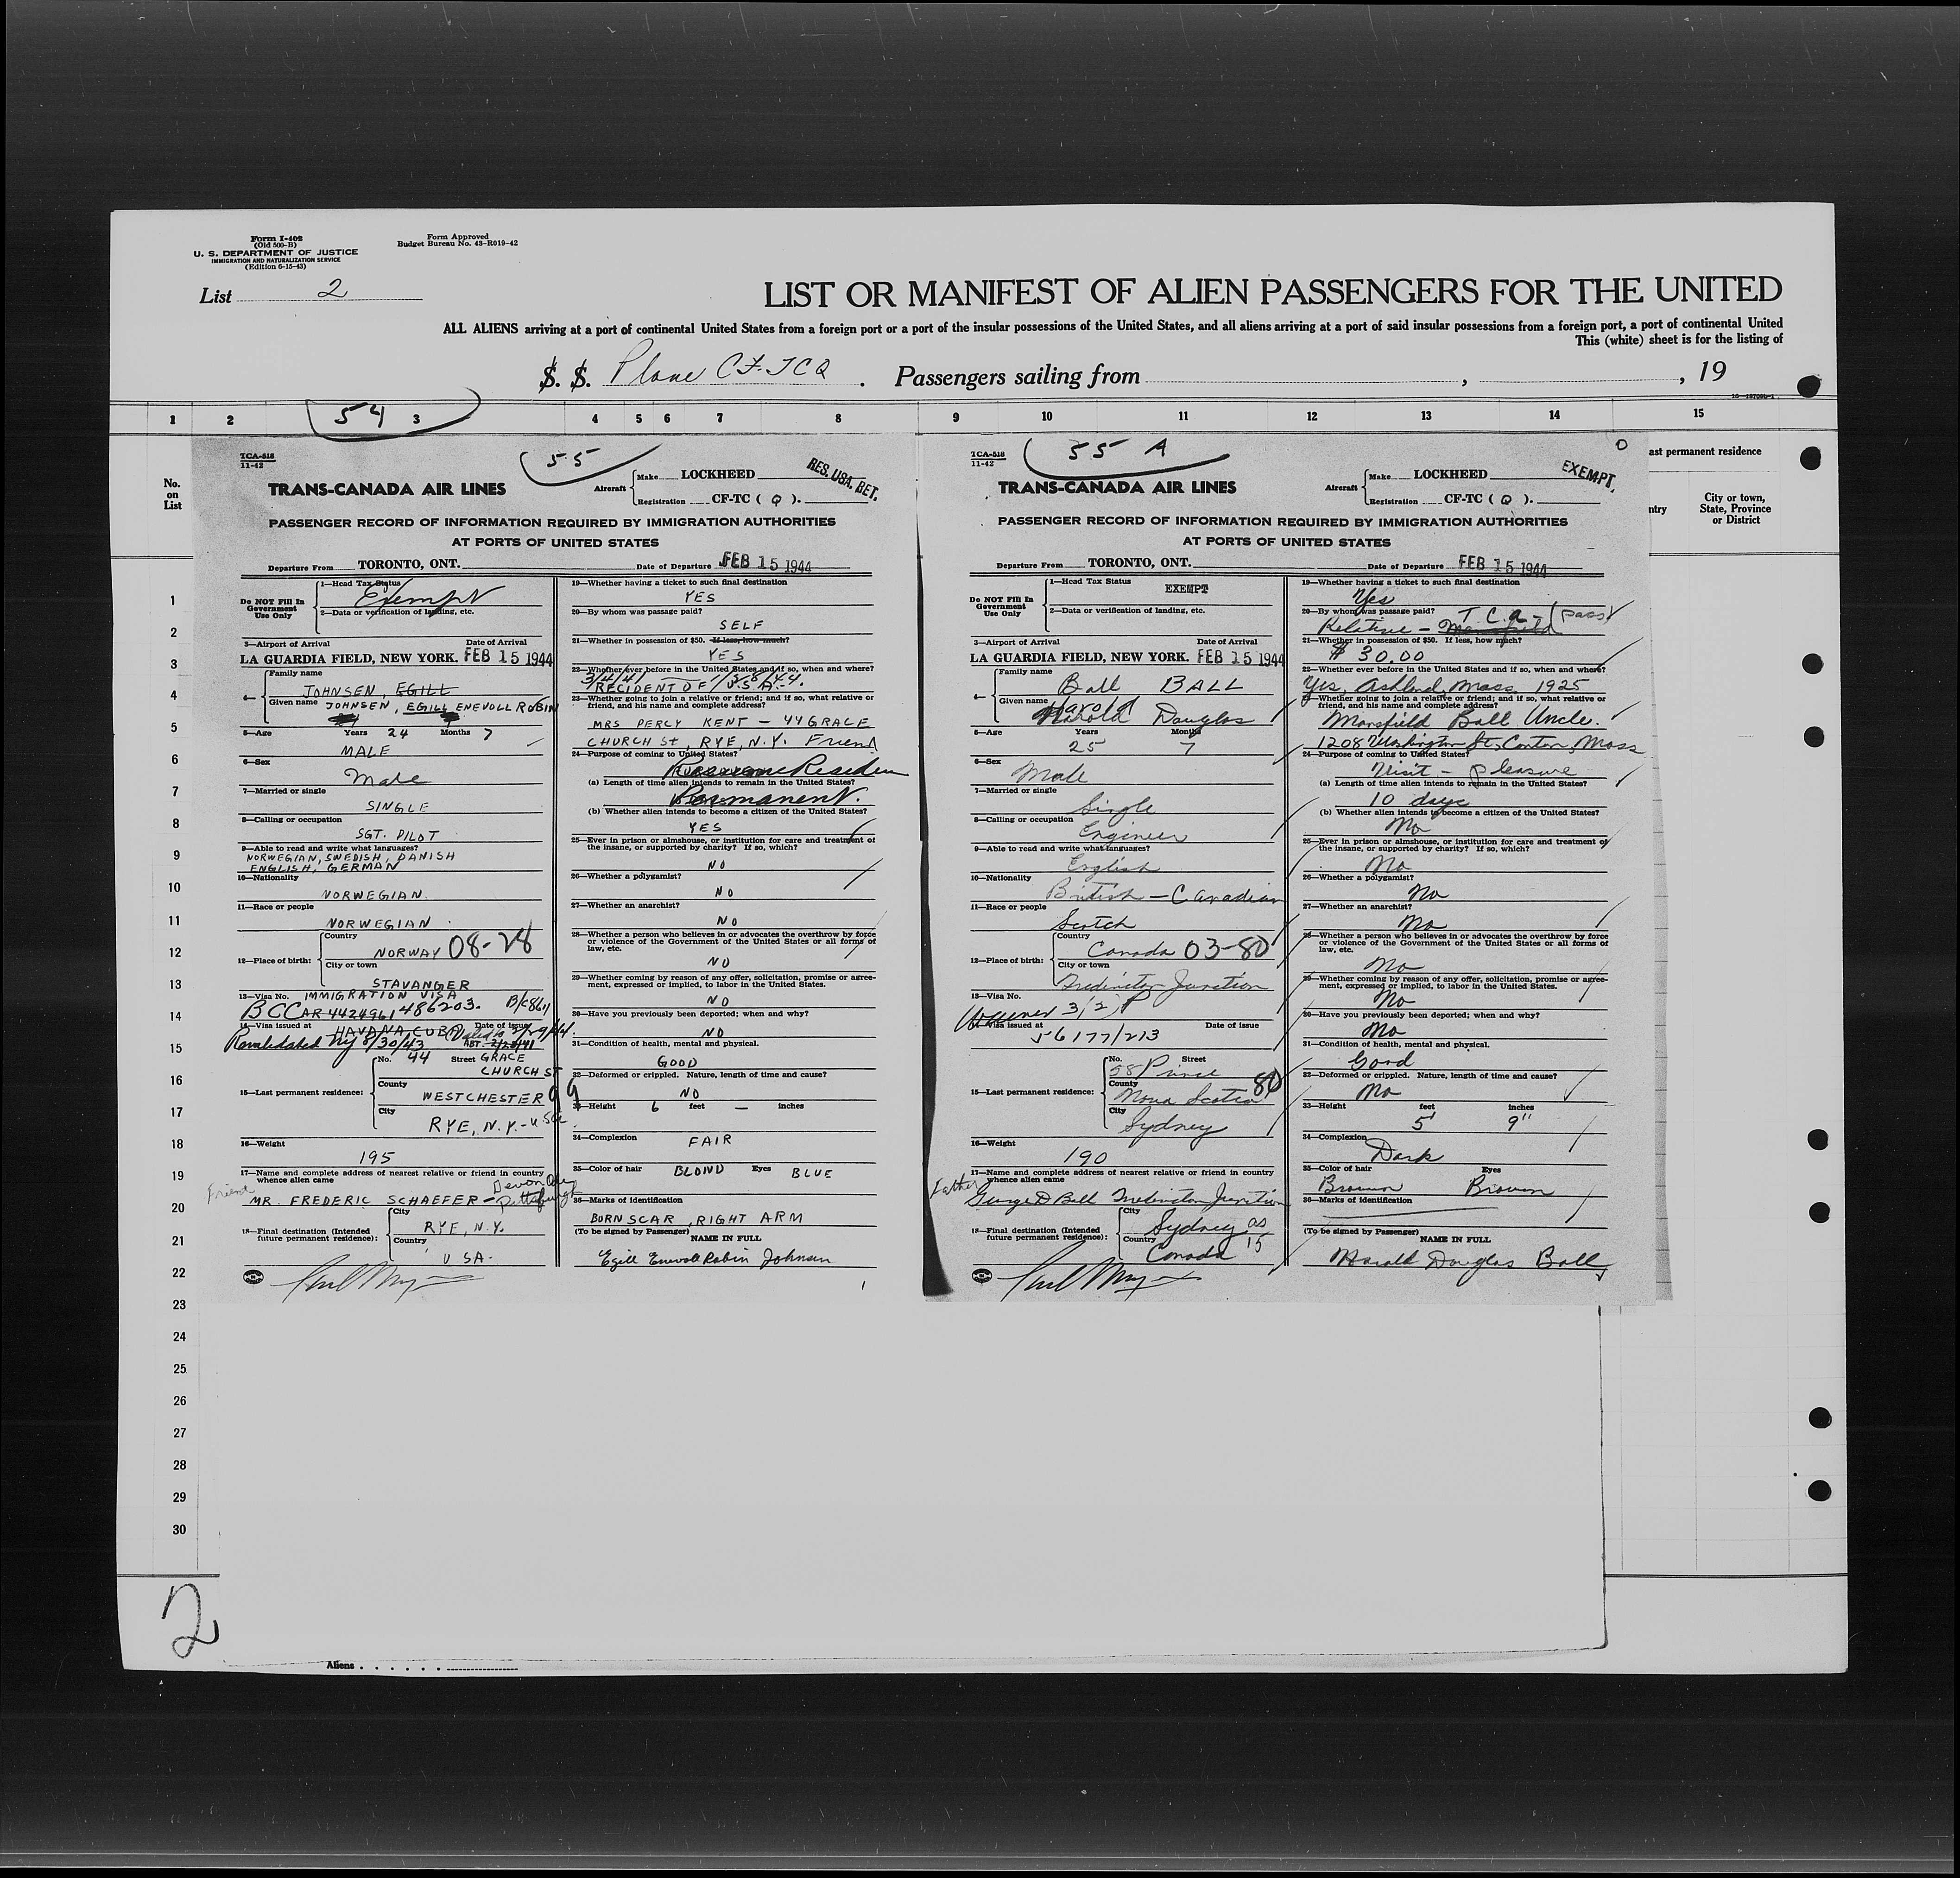 Form I-402
(Old 500-B)
U. S. DEPARTMENT OF JUSTICE
IMMIGRATION AND NATURALIZATION SERVICE
(Edition 6-15-43)
Form Approved
Budget Bureau No. 43-R019-42
List 2
LIST OR MANIFEST OF ALIEN PASSENGERS FOR THE UNITED
ALL ALIENS arriving at a port of continental United States from a foreign port or a port of the insular possessions of the United States, and all aliens arriving at a port of said insular possessions from a foreign port, a port of continental United
This (white) sheet is for the listing of
S. S. Plane CF-TCQ . Passengers sailing from , , 19
1 2 3 4 5 6 7 8 9 10 11 12 13 14 15
54
No.
on
List
ast permanent residence
ntry
City or town,
State, Province
or District
1
2
3
4
5
6
7
8
9
10
11
12
13
14
15
16
17
18
19
20
21
22
23
24
25
26
27
28
29
30
TCA-518
11-42
55
TRANS-CANADA AIR LINES
Aircraft
Make LOCKHEED
Registration CF-TC ( Q ).
RES. USA. RET.
PASSENGER RECORD OF INFORMATION REQUIRED BY IMMIGRATION AUTHORITIES
AT PORTS OF UNITED STATES
Departure From TORONTO, ONT. Date of Departure FEB 15 1944
Do NOT Fill In
Government
Use Only
1—Head Tax Status
Exempt
2—Data or verification of landing, etc.
3—Airport of Arrival Date of Arrival
LA GUARDIA FIELD, NEW YORK. FEB 15 1944
4—
Family name
JOHNSEN, EGILL
Given name JOHNSEN, EGILL ENEVOLL ROBIN
5—Age Years 24 Months 7
MALE
6—Sex
Male
7—Married or single
SINGLE
8—Calling or occupation
SGT. PILOT
9—Able to read and write what languages?
NORWEGIAN, SWEDISH, DANISH
ENGLISH, GERMAN
10—Nationality
NORWEGIAN.
11—Race or people
NORWEGIAN
12—Place of birth:
Country
NORWAY 08-28
City or town
STAVANGER
13—Visa No. IMMIGRATION VISA
BCCAR 4424961 486203.
14—Visa issued at HAVANA, CUBA Date of issue
Revalidated NY 8/30/43
15—Last permanent residence:
No. 44 Street GRACE
CHURCH ST
County
WESTCHESTER 99
City
RYE, N.Y.- USA
16—Weight
195
17—Name and complete address of nearest relative or friend in country
whence alien came
Friend
MR. FREDERIC SCHAEFER - Pittsburgh
18—Final destination (Intended
future permanent residence):
City
RYE, N.Y.
Country
USA.
19—Whether having a ticket to such final destination
YES
20—By whom was passage paid?
SELF
21—Whether in possession of $50. If less, how much?
YES
22—Whether ever before in the United States and if so, when and where?
3/4/41 1/28/44.
RECIDENT OF U.S.A.
23—Whether going to join a relative or friend; and if so, what relative or
friend, and his name and complete address?
MRS PERCY KENT - 44 GRACE
CHURCH ST, RYE, N.Y. Friend
24—Purpose of coming to United States?
(a) Length of time alien intends to remain in the United States?
Permanent.
(b) Whether alien intends to become a citizen of the United States?
YES
25—Ever in prison or almshouse, or institution for care and treatment of
the insane, or supported by charity? If so, which?
NO
26—Whether a polygamist?
NO
27—Whether an anarchist?
NO
28—Whether a person who believes in or advocates the overthrow by force
or violence of the Government of the United States or all forms of
law, etc.
NO
29—Whether coming by reason of any offer, solicitation, promise or agree-
ment, expressed or implied, to labor in the United States.
NO
30—Have you previously been deported; when and why?
NO
31—Condition of health, mental and physical.
GOOD
32—Deformed or crippled. Nature, length of time and cause?
NO
33—Height 6 feet — inches
34—Complexion
FAIR
35—Color of hair BLOND Eyes BLUE
36—Marks of identification
BURN SCAR, RIGHT ARM
(To be signed by Passenger) NAME IN FULL
Egill Enevoll Robin Johnsen
TCA-518
11-42
55 A
TRANS-CANADA AIR LINES
Aircraft
Make LOCKHEED
Registration CF-TC ( Q ).
EXEMPT.
PASSENGER RECORD OF INFORMATION REQUIRED BY IMMIGRATION AUTHORITIES
AT PORTS OF UNITED STATES
Departure From TORONTO, ONT. Date of Departure FEB 15 1944
Do NOT Fill In
Government
Use Only
1—Head Tax Status
EXEMPT
2—Data or verification of landing, etc.
3—Airport of Arrival Date of Arrival
LA GUARDIA FIELD, NEW YORK. FEB 15 1944
4—
Family name
Ball BALL
Given name Harold
Harold Douglas
5—Age Years Months
25 7
6—Sex
Male
7—Married or single
Single
8—Calling or occupation
Engineer
9—Able to read and write what languages?
English
10—Nationality
British - Canadian
11—Race or people
Scotch
12—Place of birth:
Country
Canada 03-80
City or town
Fredericton Junction
13—Visa No.
14—Visa issued at Date of issue
56177/213
15—Last permanent residence:
No. Street
38 Prince
County
Nova Scotia 80
City
Sydney
16—Weight
190
17—Name and complete address of nearest relative or friend in country
whence alien came
Father
George D Ball Fredericton Junction
18—Final destination (Intended
future permanent residence):
City
Sydney as
Country 15
Canada
19—Whether having a ticket to such final destination
Yes
20—By whom was passage paid? T.C.A - (pass)
Relative - Mansfield
21—Whether in possession of $50. If less, how much?
$ 30.00
22—Whether ever before in the United States and if so, when and where?
Yes, Ashland, Mass 1925
23—Whether going to join a relative or friend; and if so, what relative or
friend, and his name and complete address?
Mansfield Ball Uncle.
1208 Washington St, Canton Mass
24—Purpose of coming to United States?
Visit - pleasure
(a) Length of time alien intends to remain in the United States?
10 days
(b) Whether alien intends to become a citizen of the United States?
No
25—Ever in prison or almshouse, or institution for care and treatment of
the insane, or supported by charity? If so, which?
No
26—Whether a polygamist?
No
27—Whether an anarchist?
No
28—Whether a person who believes in or advocates the overthrow by force
or violence of the Government of the United States or all forms of
law, etc.
No
29—Whether coming by reason of any offer, solicitation, promise or agree-
ment, expressed or implied, to labor in the United States.
No
30—Have you previously been deported; when and why?
No
31—Condition of health, mental and physical.
Good
32—Deformed or crippled. Nature, length of time and cause?
No
33—Height feet inches
5' 9"
34—Complexion
Dark
35—Color of hair Eyes
Brown Brown
36—Marks of identification
(To be signed by Passenger) NAME IN FULL
Harold Douglas Ball
2
Aliens